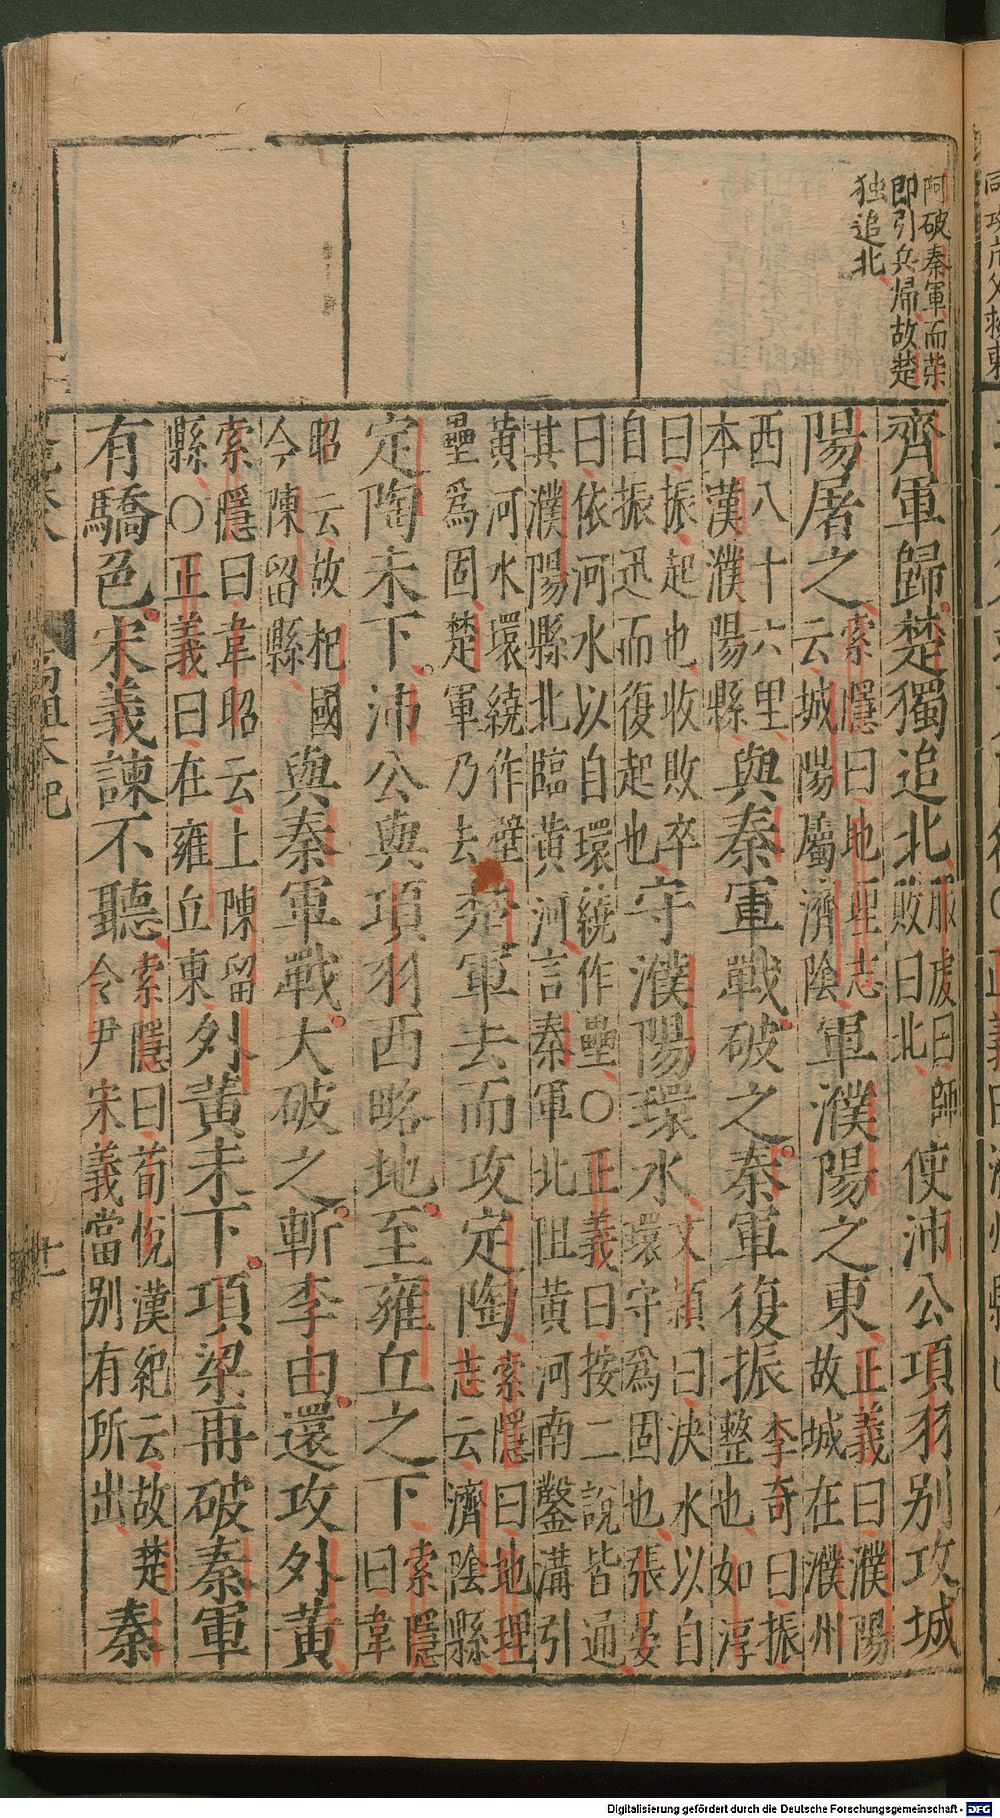 阿破秦軍而榮
即引兵帰故楚
独追北
齊軍歸楚獨追北服虔曰師敗曰北使沛公項羽别攻城
陽屠之索隱曰地理志云城陽屬濟陰軍濮陽之東正義曰濮陽故城在濮州
西八十六里本漢濮陽縣與秦軍戰破之秦軍復振李奇曰振整也如淳
曰振起也收敗卒自振迅而復起也守濮陽環水文潁曰決水以自環守為固也張晏
曰依河水以自環繞作壘○正義曰按二說皆通其濮陽縣北臨黃河言秦軍北阻黃河南鑿溝引
黃河水環繞作壁壘爲固楚軍乃去楚軍去而攻定陶索隱曰地理志云濟陰縣
定陶未下沛公與項羽西略地至雍丘之下索隱曰韋
昭云故杞國今陳留縣與秦軍戰大破之斬李由還攻外黃
索隱曰韋昭云上陳留縣○正義曰在雍丘東外黃未下項梁再破秦軍
有驕色宋義諫不聽索隱曰荀悅漢紀云故楚令尹宋義當别有所出秦
高祖本紀
十一
Digitalisierung gefördert durch die Deutsche Forschungsgemeinschaft - DFG